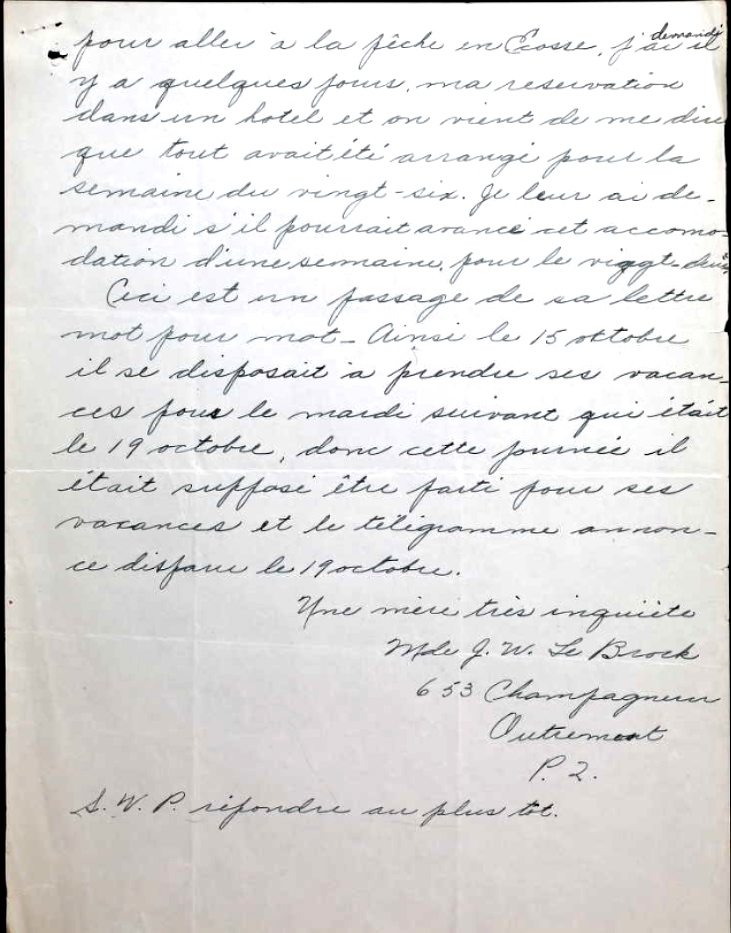 demandé
pour aller à la pêche en Ecosse, j'ai il
y a quelques jours, ma reservation
dans un hotel et on vient de me dire
que tout avait été arrangé pour la
semaine du vingt-six. Je leur ai de-
mandé s'il pourrait avancé cet accomo-
dation d'une semaine, pour le vingt-deux.
Ceci est un passage de sa lettre
mot pour mot - Ainsi le 15 octobre
il se disposait à prendre ses vacan-
ces pour le mardi suivant qui était
le 19 octobre, donc cette journée il
était supposé être parti pour ses
vacances et le télégramme annon-
ce disparu le 19 octobre.
Une mère très inquiète
Mde J. W. Le Brock
653 Champagneur
Outremont
P. Q.
S. V. P. répondre au plus tôt.